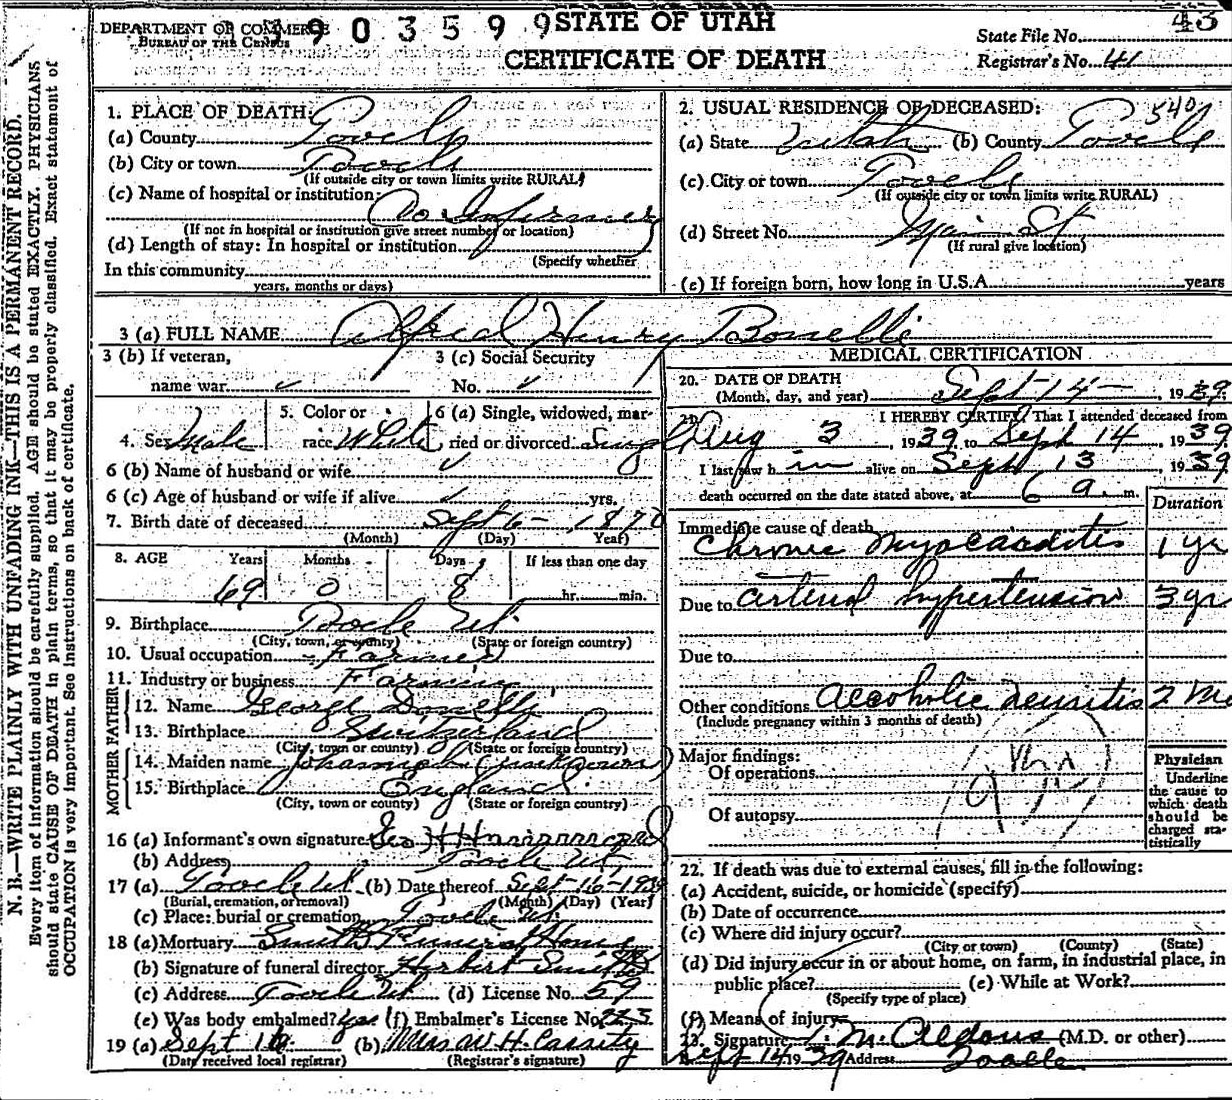 N. B.—WRITE PLAINLY WITH UNFADING INK—THIS IS A PERMANENT RECORD.
Every item of information should be carefully supplied. AGE should be stated EXACTLY. PHYSICIANS
should state CAUSE OF DEATH in plain terms, so that it may be properly classified. Exact statement of
OCCUPATION is very important. See instructions on back of certificate.
DEPARTMENT OF COMMERCE
BUREAU OF THE CENSUS
903599
STATE OF UTAH
CERTIFICATE OF DEATH
43
State File No.
Registrar's No. 41
1. PLACE OF DEATH:
(a) County Tooele
(b) City or town Tooele
(If outside city or town limits write RURAL)
(c) Name of hospital or institution:
Co. Infirmary
(If not in hospital or institution give street number or location)
(d) Length of stay: In hospital or institution
(Specify whether
In this community
years, months or days)
2. USUAL RESIDENCE OF DECEASED:
(a) State Utah (b) County Tooele
(c) City or town Tooele
(If outside city or town limits write RURAL)
(d) Street No. Main St
(If rural give location)
(e) If foreign born, how long in U.S.A. years
3 (a) FULL NAME Alfred Henry Bonelli
3 (b) If veteran,
name war
3 (c) Social Security
No.
4. Sex Male
5. Color or
race White
6 (a) Single, widowed, mar-
ried or divorced Single
6 (b) Name of husband or wife
6 (c) Age of husband or wife if alive yrs.
7. Birth date of deceased Sept 6 - 1870
(Month) (Day) Year)
8. AGE Years Months Days If less than one day
69 0 8 hr. min.
9. Birthplace Tooele Ut.
(City, town, or county) (State or foreign country)
10. Usual occupation Farmer
11. Industry or business Farming
FATHER
12. Name George Bonelli
13. Birthplace Switzerland
(City, town or county) (State or foreign country)
MOTHER
14. Maiden name (unknown)
15. Birthplace England
(City, town or county) (State or foreign country)
16 (a) Informant's own signature Geo H
(b) Address Tooele Ut.
17 (a) Tooele Ut. (b) Date thereof Sept-16-1939
(Burial, cremation, or removal) (Month) (Day) (Year)
(c) Place: burial or cremation Tooele Ut.
18 (a) Mortuary Smith Funeral Home
(b) Signature of funeral director Herbert Smith
(c) Address Tooele Ut (d) License No. 59
(e) Was body embalmed? yes (f) Embalmer's License No. 223
19 (a) Sept 16 (b) W. H. Cassity
(Date received local registrar) (Registrar's signature)
MEDICAL CERTIFICATION
20. DATE OF DEATH
(Month, day, and year) Sept-14- , 1939
21. I HEREBY CERTIFY, That I attended deceased from
Aug 3 , 1939, to Sept 14 , 1939
I last saw him alive on Sept 13 , 1939
death occurred on the date stated above, at 6 a. m.
Duration
Immediate cause of death
Chronic Myocarditis 1 yr
Due to arterial hypertension 3 yr
Due to
Other conditions Alcoholic neuritis 2 Mo
(Include pregnancy within 3 months of death)
Major findings:
Of operations
Of autopsy
Physician
Underline
the cause to
which death
should be
charged sta-
tistically
22. If death was due to external causes, fill in the following:
(a) Accident, suicide, or homicide (specify)
(b) Date of occurrence
(c) Where did injury occur?
(City or town) (County) (State)
(d) Did injury occur in or about home, on farm, in industrial place, in
public place? (e) While at Work?
(Specify type of place)
(f) Means of injury
23. Signature M. Aldous (M.D. or other)
Sept 14 1939 Address Tooele